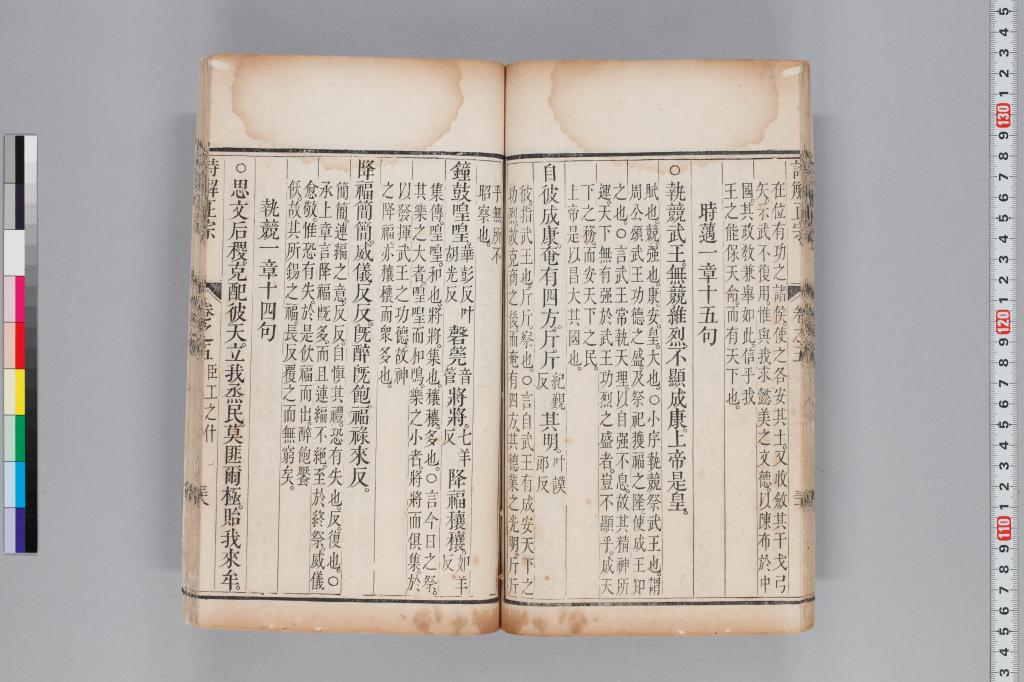 在位有功之諸侯使之各安其土又收斂其干戈弓
矢示武不復用惟與我求懿美之文德以陳布於中
國其政敎兼舉如此信乎我
王之能保天命而有天下也
時邁一章十五句
○執競武王無競維烈不顯成康上帝是皇
賦也競强也康安皇大也○小序執競祭武王也謂
周公頌武王功德之盛及祭祀獲福之隆使成王知
之也○言武王常執天理以自强不息故其精神所
運天下無有强於武王功烈之盛者豈不顯乎成天
下之務而安天下之民
上帝是以昌大其國也
自彼成康奄有四方斤斤紀覲反其明叶謨郞反
彼指武王也斤斤察也○言自武王有成安天下之
功烈故克商之後而奄有四方其德業之光明斤斤
乎無所不
昭察也
鐘鼓喤喤華彭反叶胡光反磬筦音管將將七羊反降福穰穰如羊反
集傳喤喤和也將將集也穰穰多也○言今日之祭
其樂之大者喤喤而和鳴樂之小者將將而俱集於
以發揮武王之功德故神
之降福亦穰穰而衆多也
降福簡簡威儀反反旣醉旣飽福祿來反
簡簡連綿之意反反自愼其禮恐有失也反復也○
承上章言降福旣多而且連綿不絕至於終祭威儀
愈敬惟恐有失於是飮福而出醉飽饜
飫故其所錫之福長反覆之而無窮矣
執競一章十四句
○思文后稷克配彼天立我烝民莫匪爾極貽我來牟
詩解正宗
卷之五
臣工之什